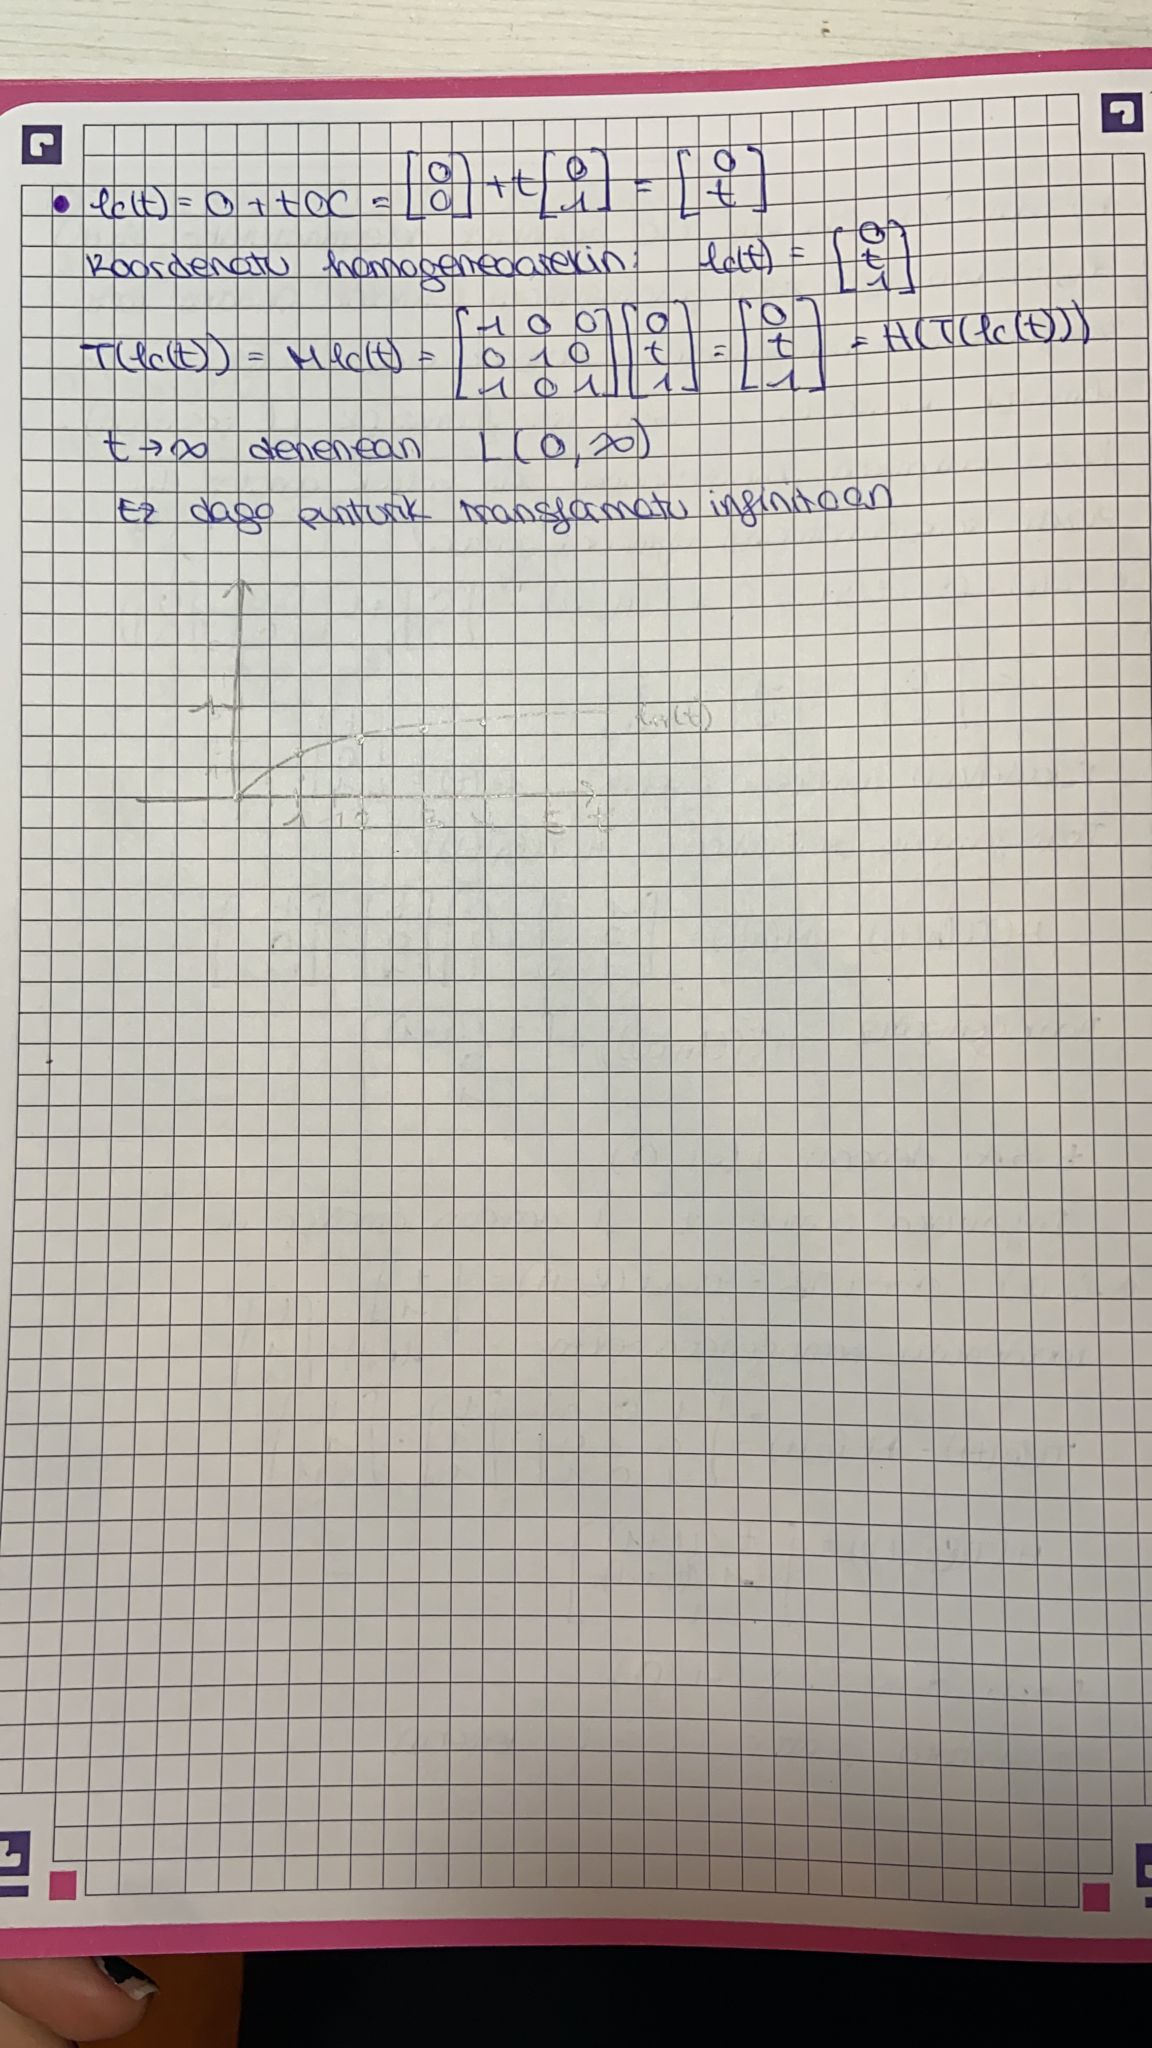 • lc(t) = O + t OC = [0 0] + t [0 1] = [0 t]
Koordenatu homogeneoarekin: lc(t) = [0 t 1]
T(lc(t)) = M lc(t) = [1 0 0; 0 1 0; 1 0 1] [0 t 1] = [0 t 1] = H(T(lc(t)))
t → ∞ denenean L(0, ∞)
Ez dago punturik transformatu infinitoan
1
1 2 3 4 5 t